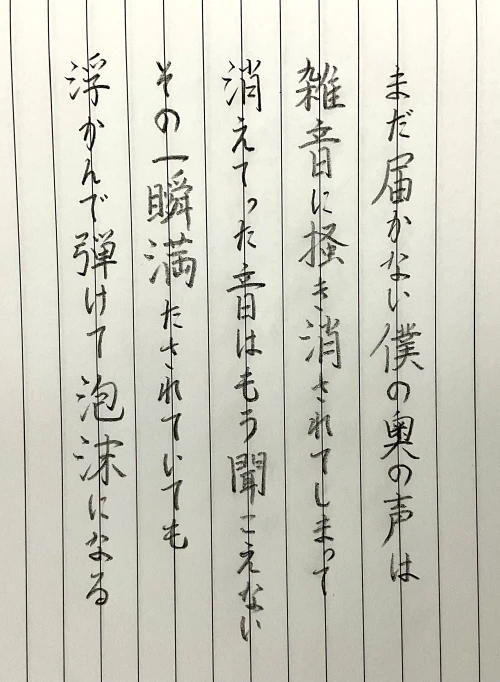 まだ届かない僕の奥の声は
雑音に掻き消されてしまって
消えてった音はもう聞こえない
その一瞬満たされていても
浮かんで弾けて泡沫になる